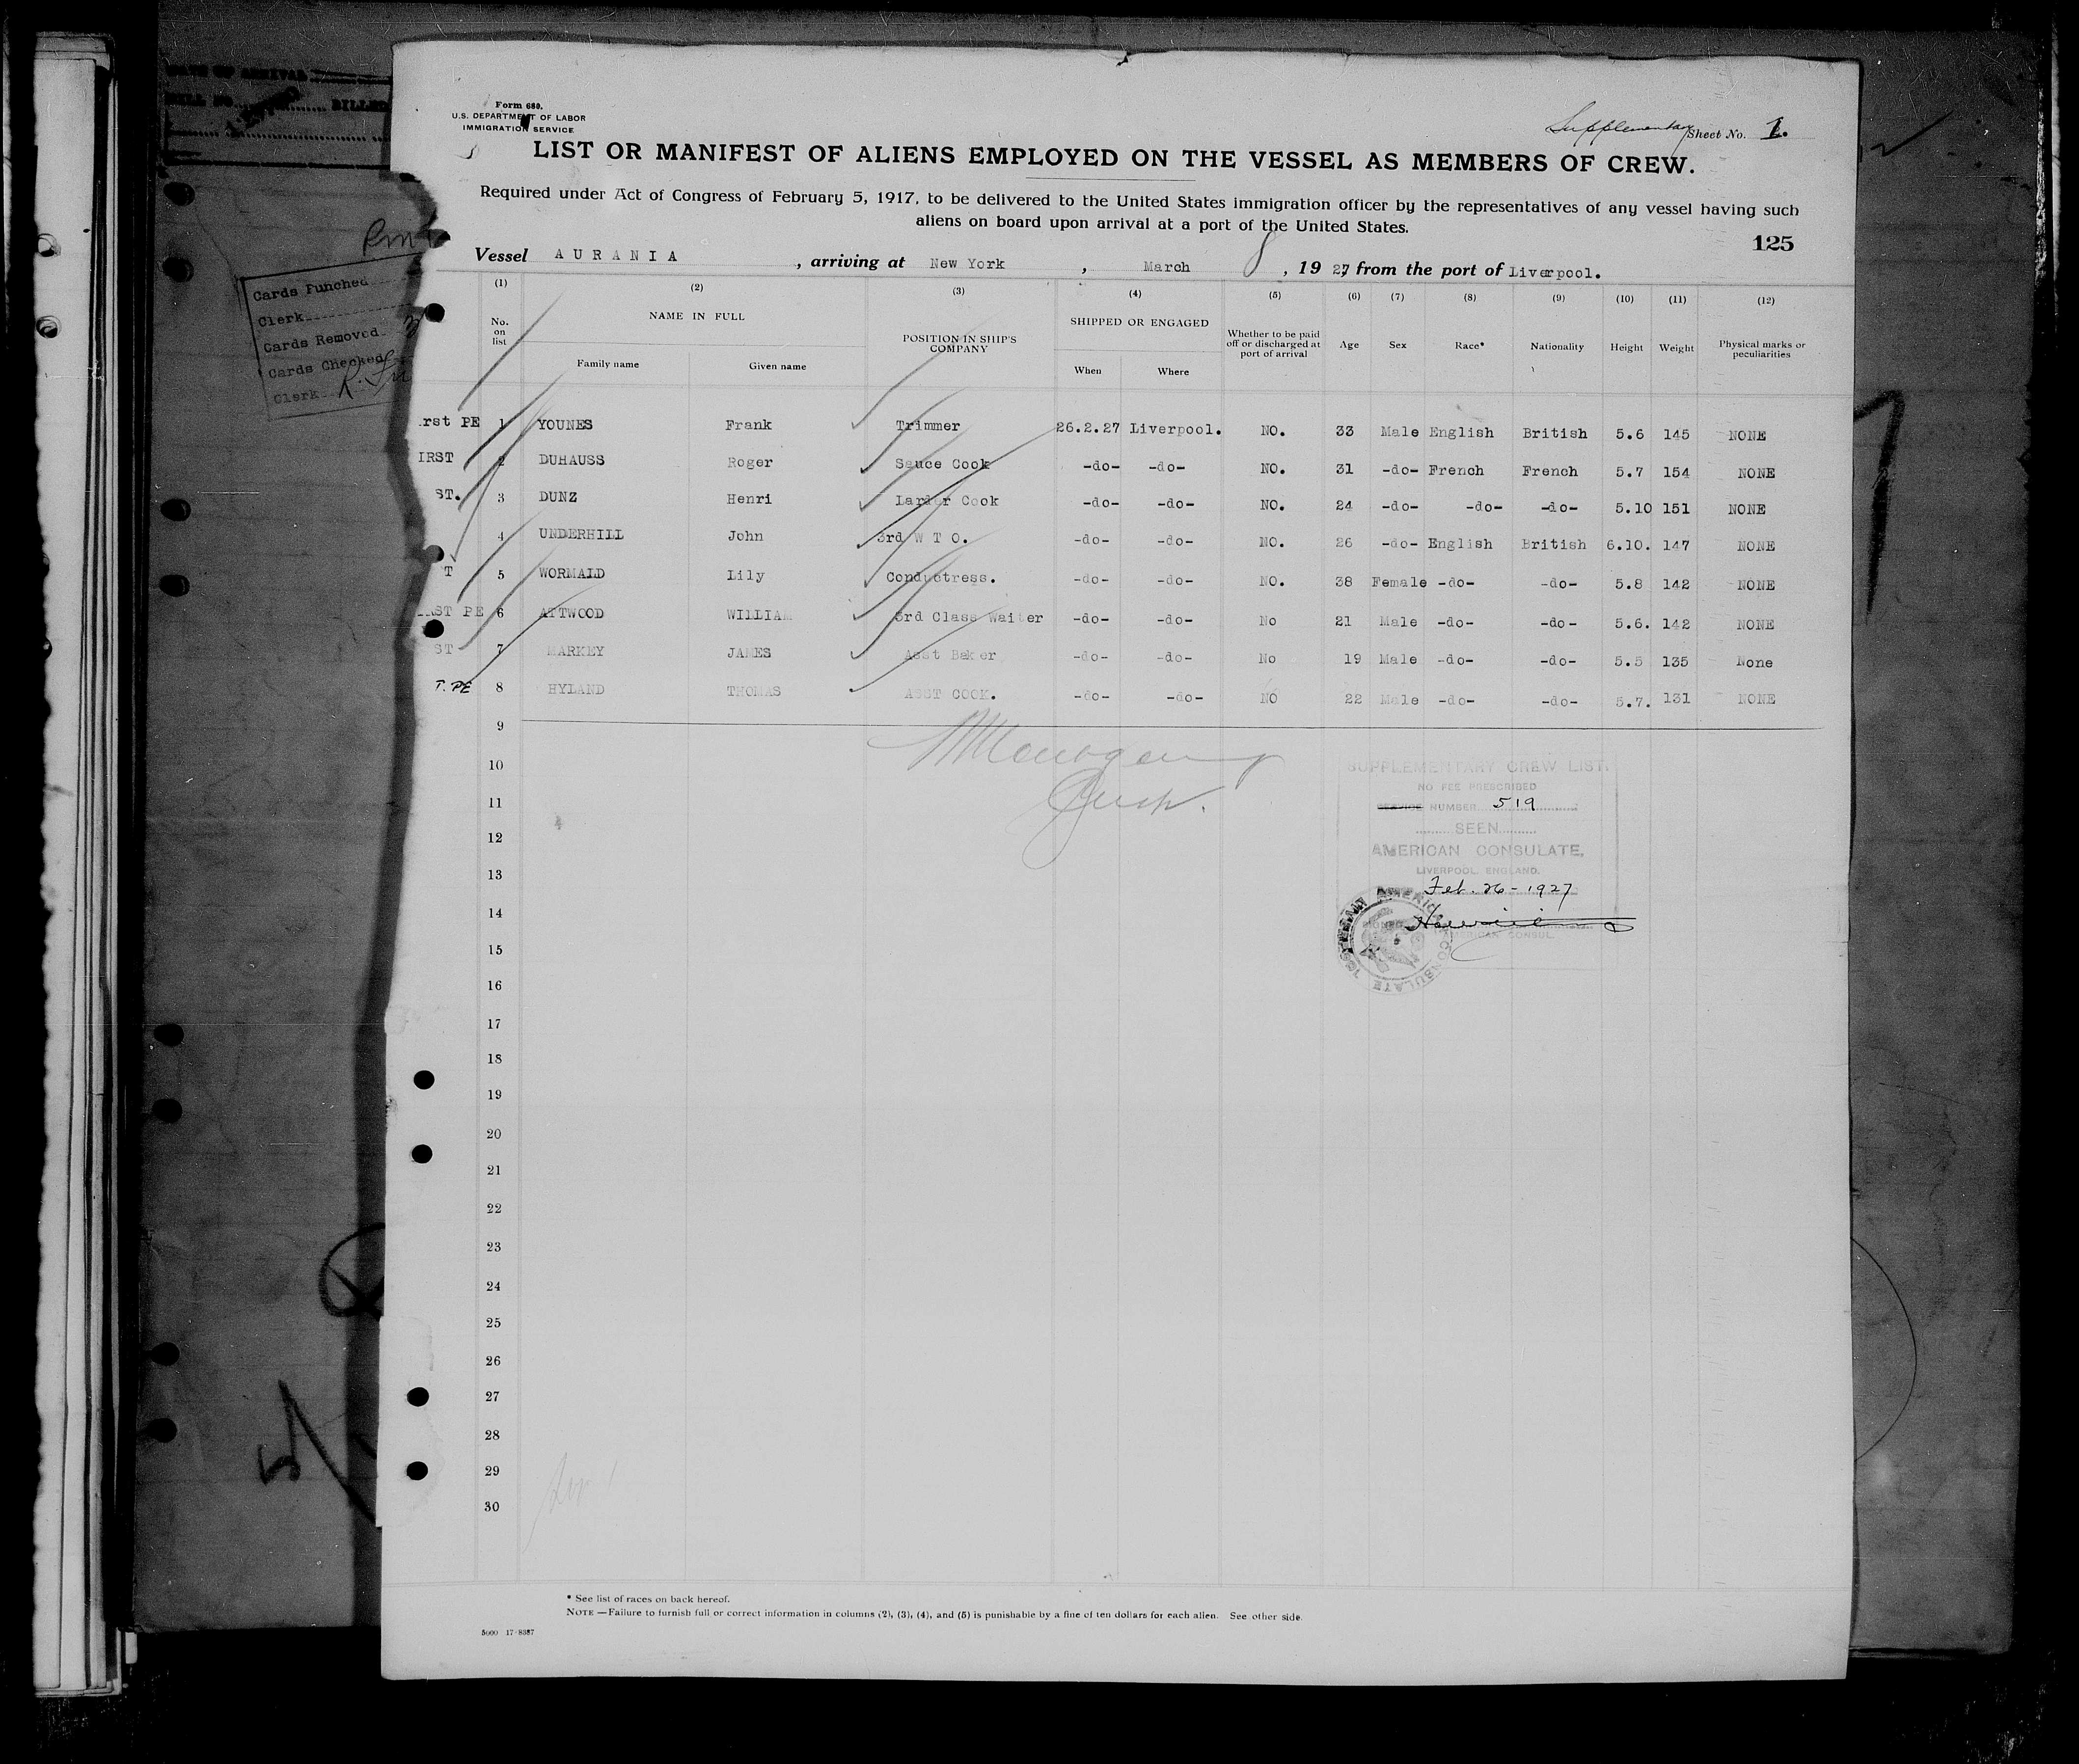 Form 680.
U.S. DEPARTMENT OF LABOR
IMMIGRATION SERVICE
Supplementary Sheet No. 1.
LIST OR MANIFEST OF ALIENS EMPLOYED ON THE VESSEL AS MEMBERS OF CREW.
Required under Act of Congress of February 5, 1917, to be delivered to the United States immigration officer by the representatives of any vessel having such
aliens on board upon arrival at a port of the United States.
125
Vessel AURANIA, arriving at New York, March 8, 1927, from the port of Liverpool.
Cards Punched
Clerk
Cards Removed
Cards Checked
Clerk
(1) (2) (3) (4) (5) (6) (7) (8) (9) (10) (11) (12)
No. on list NAME IN FULL POSITION IN SHIP'S COMPANY SHIPPED OR ENGAGED Whether to be paid off or discharged at port of arrival Age Sex Race* Nationality Height Weight Physical marks or peculiarities
Family name Given name When Where
rst PE 1 YOUNES Frank Trimmer 26.2.27 Liverpool. NO. 33 Male English British 5.6 145 NONE
IRST 2 DUHAUSS Roger Sauce Cook -do- -do- NO. 31 -do- French French 5.7 154 NONE
ST. 3 DUNZ Henri Larder Cook -do- -do- NO. 24 -do- -do- -do- 5.10 151 NONE
4 UNDERHILL John 3rd W T O. -do- -do- NO. 26 -do- English British 6.10. 147 NONE
T 5 WORMALD Lily Conductress. -do- -do- NO. 38 Female -do- -do- 5.8 142 NONE
RST PE 6 ATTWOOD WILLIAM 3rd Class Waiter -do- -do- No 21 Male -do- -do- 5.6. 142 NONE
ST 7 MARKEY JAMES Asst Baker -do- -do- No 19 Male -do- -do- 5.5 135 None
T. PE 8 HYLAND THOMAS ASST COOK. -do- -do- NO 22 Male -do- -do- 5.7. 131 NONE
9
10
11
12
13
14
15
16
17
18
19
20
21
22
23
24
25
26
27
28
29
30
SUPPLEMENTARY CREW LIST.
NO FEE PRESCRIBED
SERVICE NUMBER 519
SEEN
AMERICAN CONSULATE,
LIVERPOOL, ENGLAND.
Feb. 26-1927
AMERICAN CONSUL
* See list of races on back hereof.
NOTE—Failure to furnish full or correct information in columns (2), (3), (4), and (5) is punishable by a fine of ten dollars for each alien. See other side.
5000 17-8387